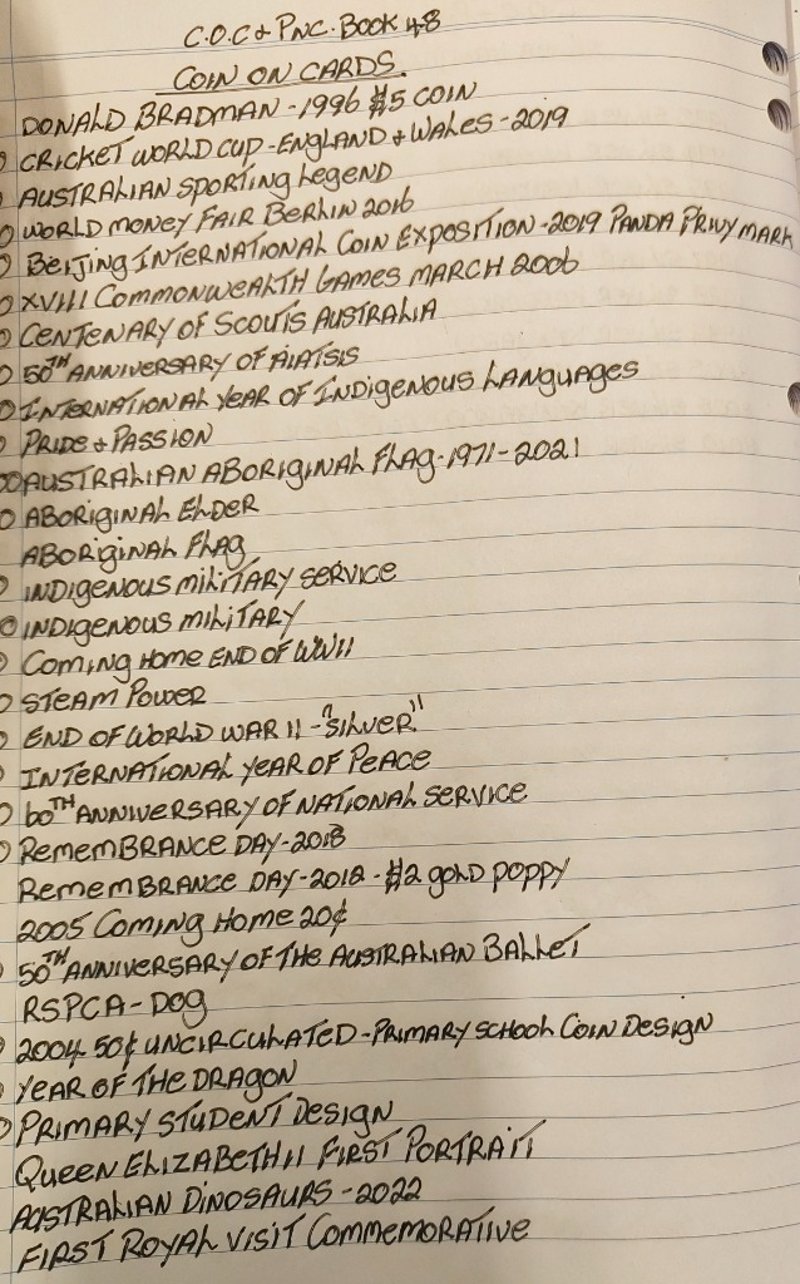 C.O.C & PNC. BOOK 48
COIN ON CARDS.
DONALD BRADMAN - 1996 $5 COIN
CRICKET WORLD CUP - ENGLAND & WALES - 2019
AUSTRALIAN SPORTING LEGEND
WORLD MONEY FAIR BERLIN 2016
BEIJING INTERNATIONAL COIN EXPOSITION - 2019 PANDA PRIVY MARK
XVIII COMMONWEALTH GAMES MARCH 2006
CENTENARY OF SCOUTS AUSTRALIA
50TH ANNIVERSARY OF AIATSIS
INTERNATIONAL YEAR OF INDIGENOUS LANGUAGES
PRIDE & PASSION
AUSTRALIAN ABORIGINAL FLAG - 1971 - 2021
ABORIGINAL ELDER
ABORIGINAL FLAG
INDIGENOUS MILITARY SERVICE
INDIGENOUS MILITARY
COMING HOME END OF WWII
STEAM POWER
END OF WORLD WAR II - "SILVER"
INTERNATIONAL YEAR OF PEACE
60TH ANNIVERSARY OF NATIONAL SERVICE
REMEMBRANCE DAY - 2018
REMEMBRANCE DAY - 2012 - $2 GOLD POPPY
2005 COMING HOME 20¢
50TH ANNIVERSARY OF THE AUSTRALIAN BALLET
RSPCA - DOG
2004 50¢ UNCIRCULATED - PRIMARY SCHOOL COIN DESIGN
YEAR OF THE DRAGON
PRIMARY STUDENT DESIGN
QUEEN ELIZABETH II FIRST PORTRAIT
AUSTRALIAN DINOSAURS - 2022
FIRST ROYAL VISIT COMMEMORATIVE